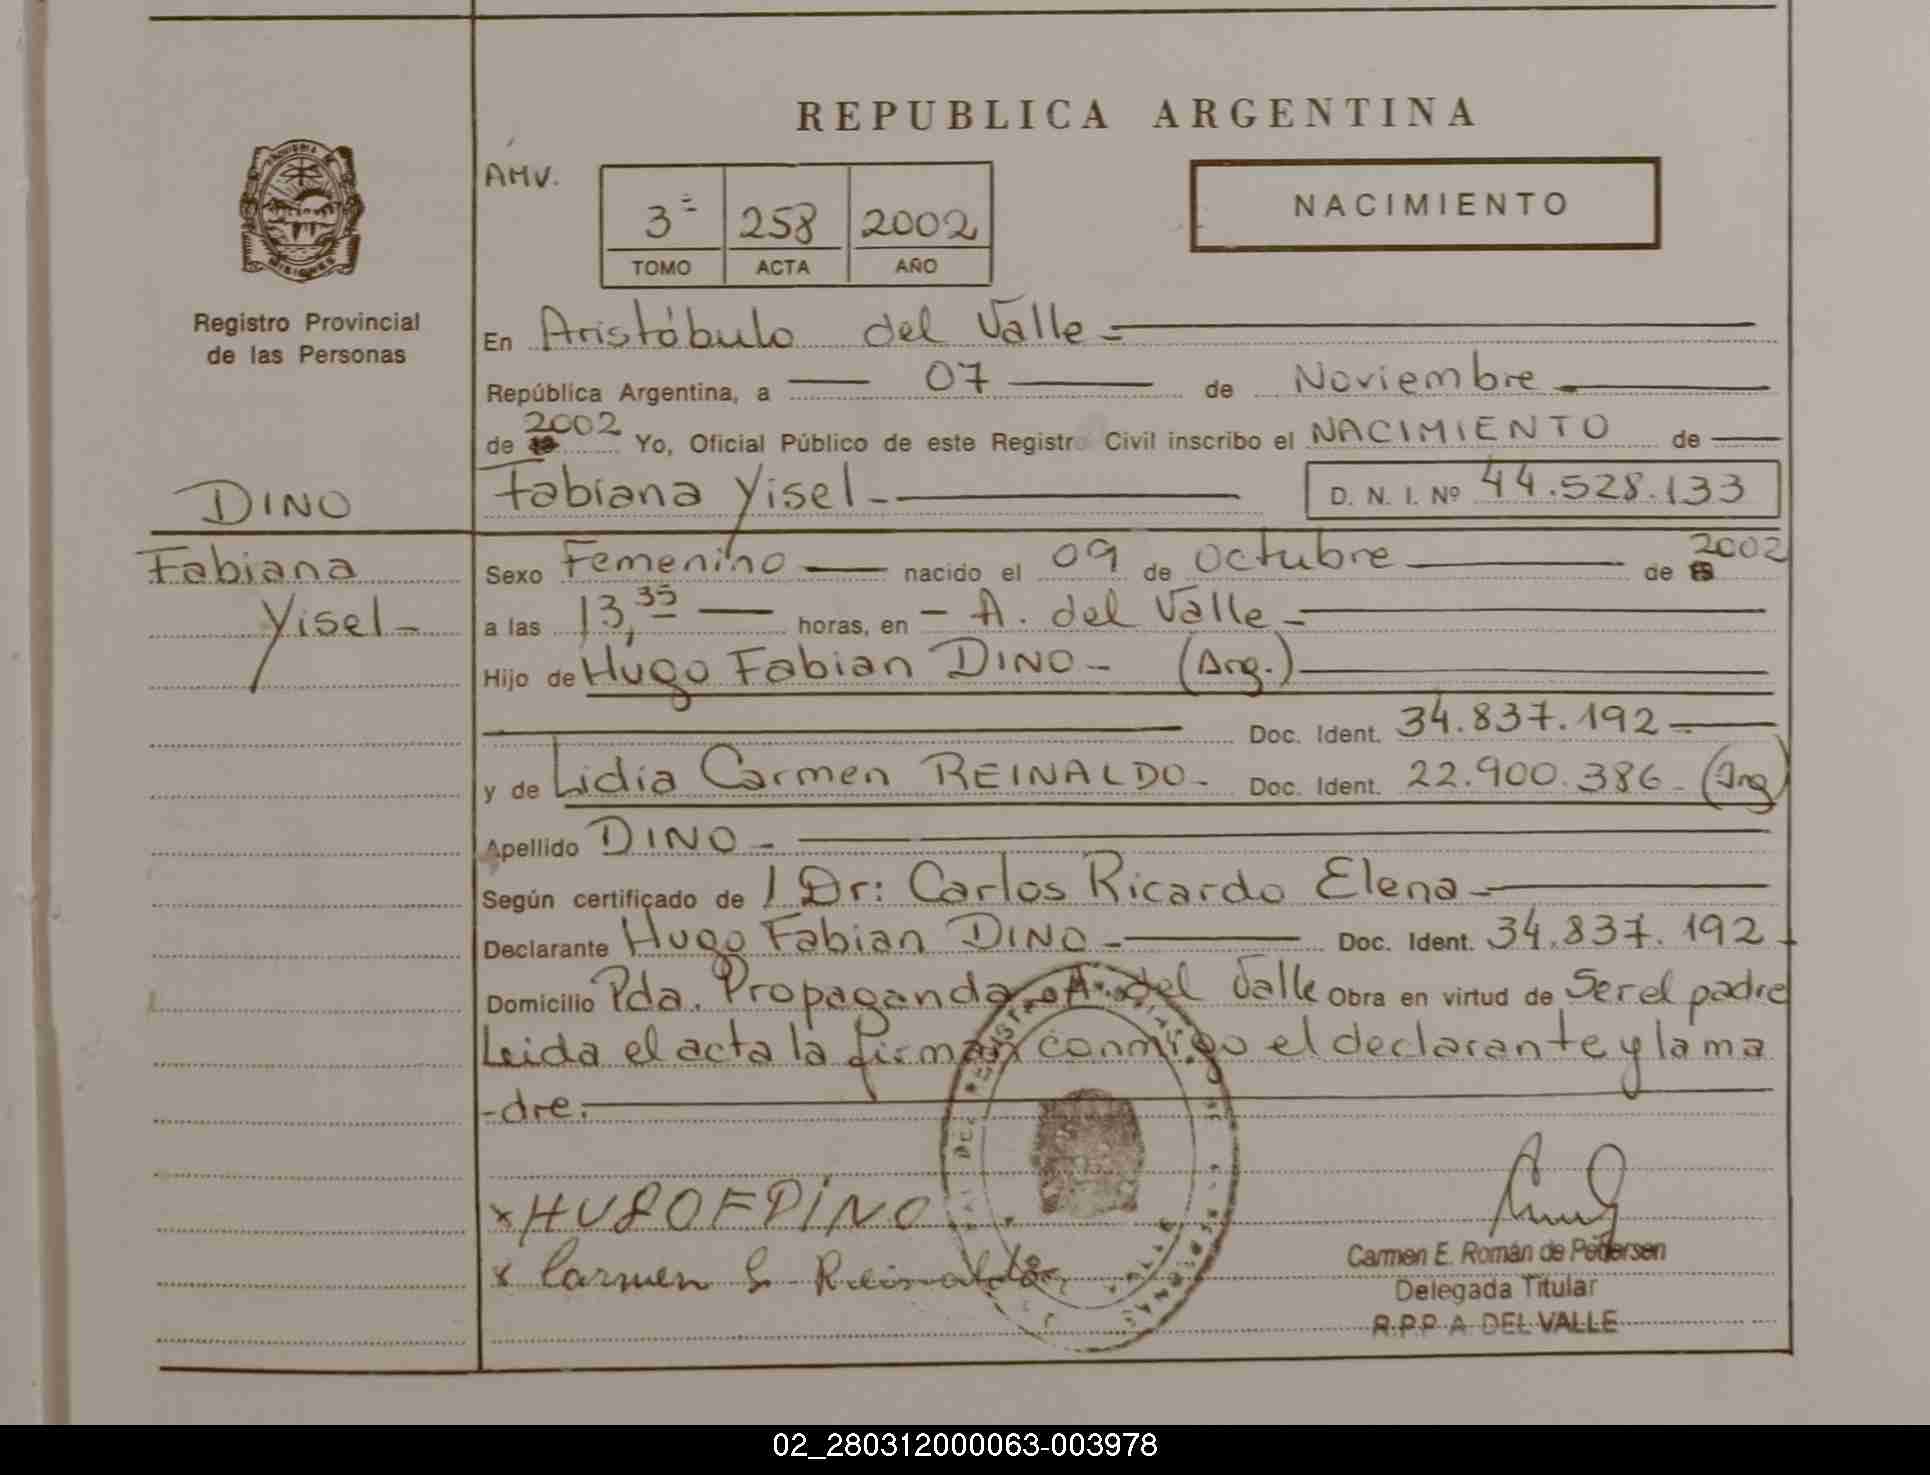 REPUBLICA ARGENTINA
AMV.
3ª 258 2002
TOMO ACTA AÑO
NACIMIENTO
MISIONES
Registro Provincial
de las Personas
En Aristóbulo del Valle
República Argentina, a 07 de Noviembre
de 2002 Yo, Oficial Público de este Registro Civil inscribo el NACIMIENTO de
DINO
Fabiana Yisel
D. N. I. Nº 44.528.133
Fabiana
Yisel
Sexo Femenino nacido el 09 de Octubre de 2002
a las 13,35 horas, en A. del Valle
Hijo de Hugo Fabian DINO (Arg.)
Doc. Ident. 34.837.192
y de Lidia Carmen REINALDO Doc. Ident. 22.900.386 (Arg)
Apellido DINO
Según certificado de Dr: Carlos Ricardo Elena
Declarante Hugo Fabian DINO Doc. Ident. 34.837.192
Domicilio Pda. Propaganda A. del Valle Obra en virtud de Ser el padre
Leida el acta la firman conmigo el declarante y la ma
-dre.
x HUGO F DINO
x Carmen L Reinaldo
Carmen E. Román de Pedersen
Delegada Titular
R.P.P A. DEL VALLE
02_280312000063-003978